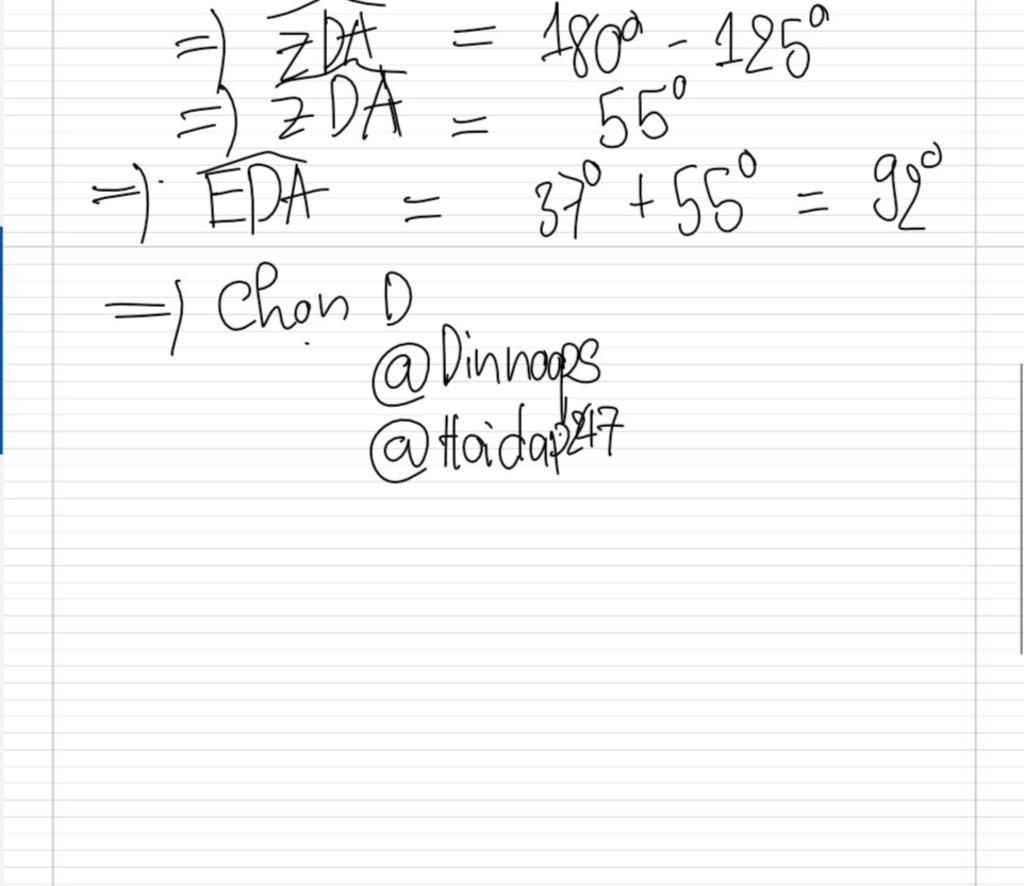 => zDA = 180° - 125°
=> zDA = 55°
=> EDA = 37° + 55° = 92°
=> Chọn D
@Dinhoaps
@Hoidap247